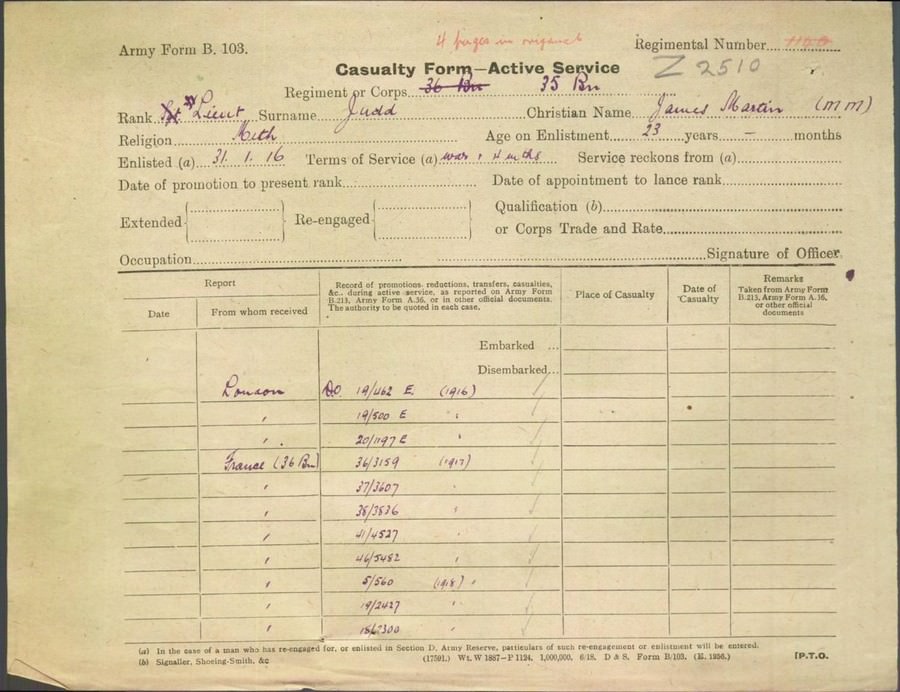 4 pages in original
Army Form B. 103. Regimental Number 1160
Casualty Form—Active Service Z 2510
Regiment or Corps 36 Bn 35 Bn
Rank Sgt 2/Lieut Surname Judd Christian Name James Martin (MM)
Religion Meth Age on Enlistment 23 years — months
Enlisted (a) 31. 1. 16 Terms of Service (a) war + 4 mths Service reckons from (a)
Date of promotion to present rank Date of appointment to lance rank
Extended Re-engaged Qualification (b)
or Corps Trade and Rate
Occupation Signature of Officer.
Report
Date From whom received
Record of promotions, reductions, transfers, casualties,
&c., during active service, as reported on Army Form
B.213, Army Form A.36, or in other official documents.
The authority to be quoted in each case.
Place of Casualty
Date of
Casualty
Remarks
Taken from Army Form
B.213, Army Form A.36,
or other official
documents
Embarked ...
Disembarked...
London DO. 19/462 E. (1916)
" 19/500 E "
" 20/1197 E "
France (36 Bn) 36/3159 (1917)
" 37/3607 "
" 38/3836 "
" 41/4527
" 46/5482 "
" 5/560 (1918) "
" 19/2427 "
" 18/2300 "
(a) In the case of a man who has re-engaged for, or enlisted in Section D, Army Reserve, particulars of such re-engagement or enlistment will be entered.
(b) Signaller, Shoeing-Smith, &c (17591.) Wt. W 1887—P 1124. 1,000,000. 6/18. D & S. Form B/103. (E. 1256.) [P.T.O.